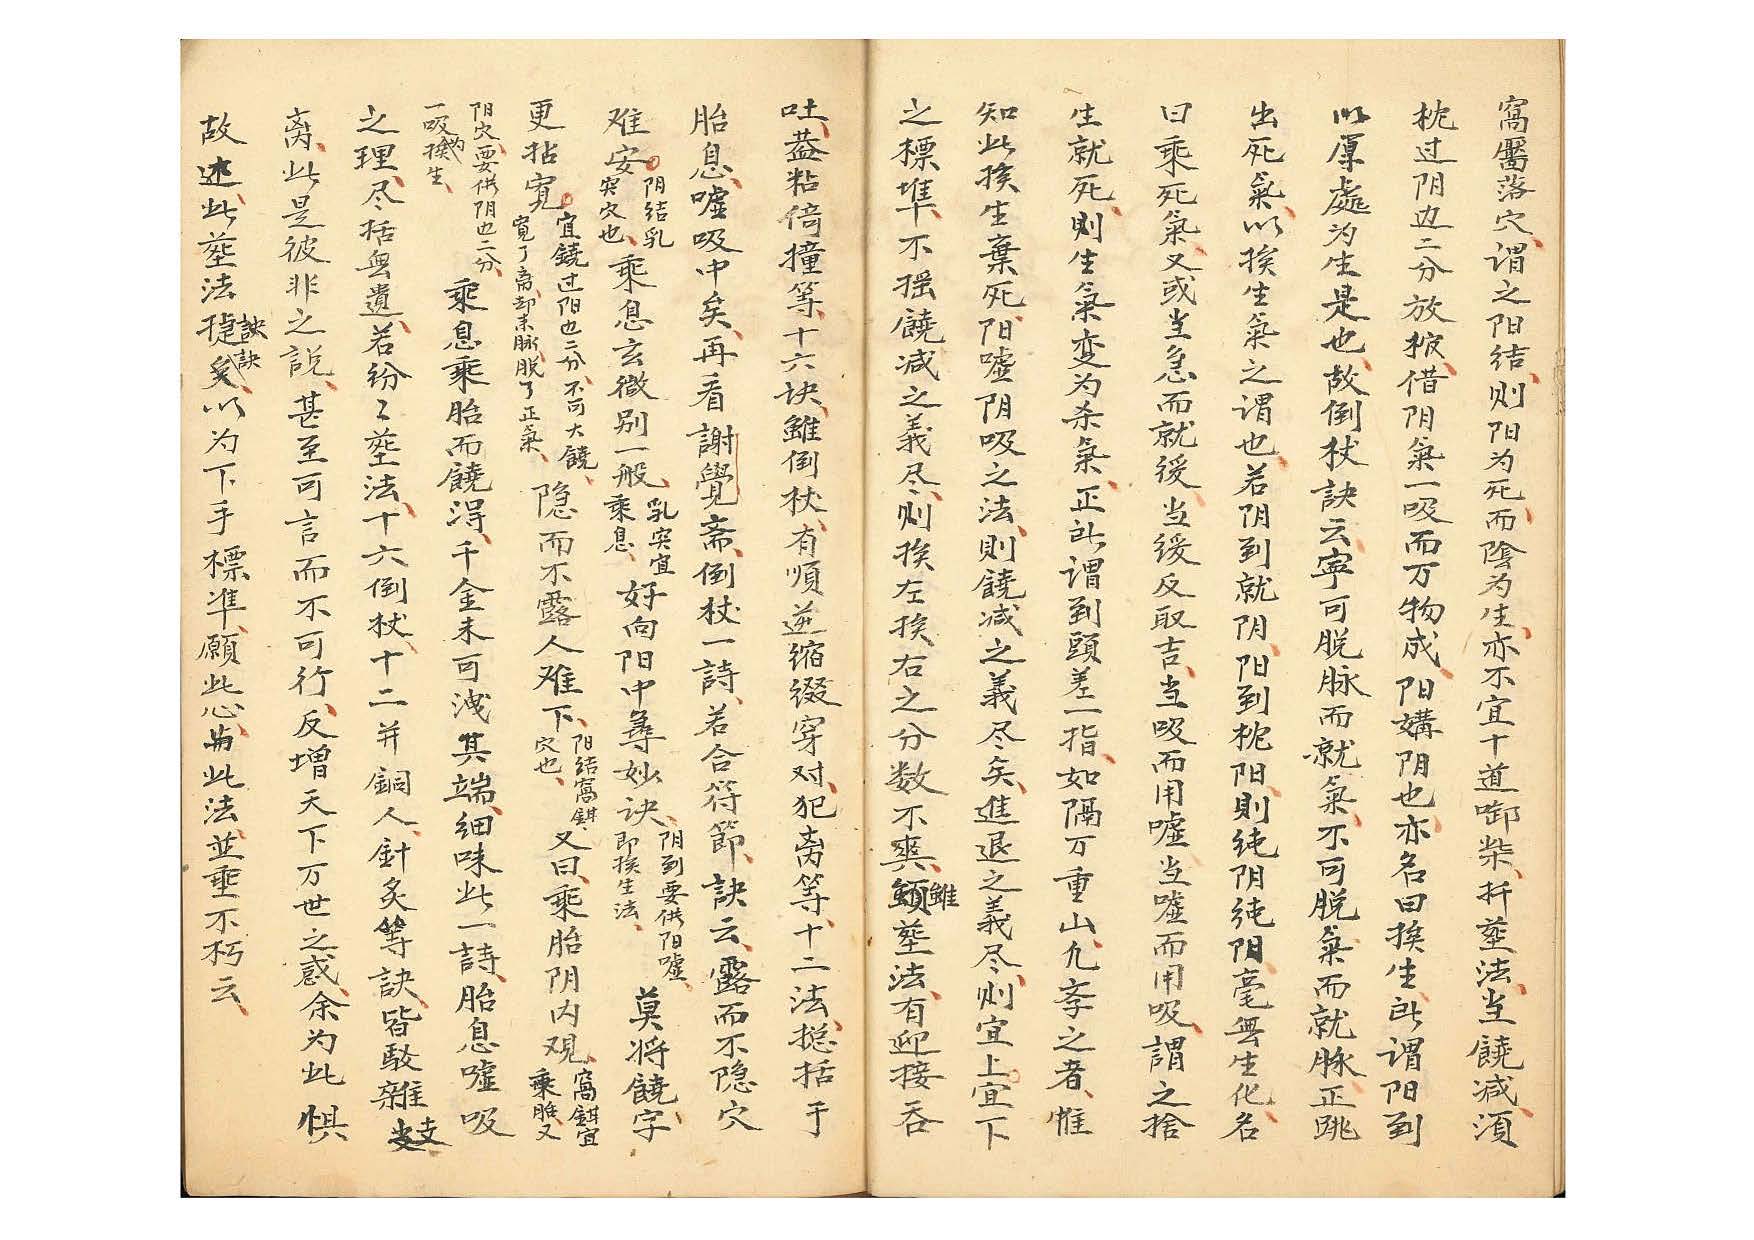 窩靨落穴、谓之阳结、则阳为死而陰为生、亦不宜十道啣柴、扦塟法、当饒减、須
枕过阴边二分放棺、借阴氣一吸而万物成、阳媾阴也、亦名曰挨生、所谓阳到
以厚處为生是也、故倒杖訣云、寧可脱脉而就氣、不可脱氣而就脉、正跳
出死氣、以挨生氣之谓也、若阴到就阴、阳到枕阳、則纯阴纯阳、毫無生化、名
曰乘死氣、又或当急而就缓、当缓反取吉、当吸而用嘘、当嘘而用吸、謂之捨
生就死、则生氣变为杀氣、正所谓到頭差一指、如隔万重山、九李之者、惟
知此挨生棄死、阳嘘阴吸之法、則饒减之義尽矣、進退之義尽、则宜上宜下
之標準、不摇饒减之義尽、则挨左挨右之分数不爽、雖塟法、有迎接吞
吐、葢粘倚撞等、十六诀、雖倒杖、有順逆缩缀穿对、犯离等、十二法、揔括于
胎息、嘘吸中矣、再看謝覺斋、倒杖一詩、若合符節、訣云、露而不隐穴
难安、阴结乳突穴也、乘息玄微别一般、乳突宜乘息、好向阳中尋妙诀、阴到要供阳嘘、即挨生法、莫将饒字
更拈寬、宜饒过阳边二分、不可大饒、寛了离却来脉、脱了正氣、隐而不露人难下、阳结窩鉗穴也、又曰、乘胎阴内观、窩鉗宜乘胎、又
阴穴、要供阴边二分、一吸为挨生、乘息乘胎而饒得、千金未可洩其端、細味此一詩、胎息嘘吸
之理、尽括無遺、若纷〻塟法、十六倒杖、十二并銅人、針炙等訣、皆駁雜支
离、此是彼非之說、甚至可言而不可行、反增天下万世之惑、余为此惧
故述、此塟法捷訣、以为下手標凖、願此心與此法、並垂不朽云、